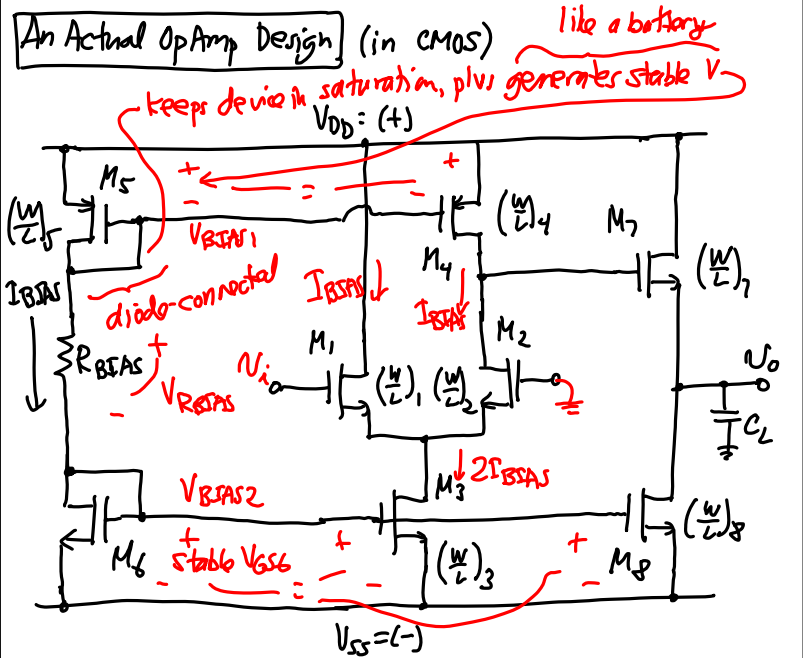 An Actual OpAmp Design (in CMOS)
like a battery
keeps device in saturation, plus generates stable V
VDD = (+)
+ = - +
- -
M5
(W/L)5
VBIAS1
(W/L)4
M4
M7
(W/L)7
IBIAS
diode-connected
IBIAS
IBIAS
RBIAS
+
VRBIAS
-
M1
Vi
(W/L)1
(W/L)2
M2
Vo
CL
VBIAS2
2IBIAS
M3
M6
+
stable VGS6
-
=
+
-
(W/L)3
+
-
M8
(W/L)8
VSS = (-)